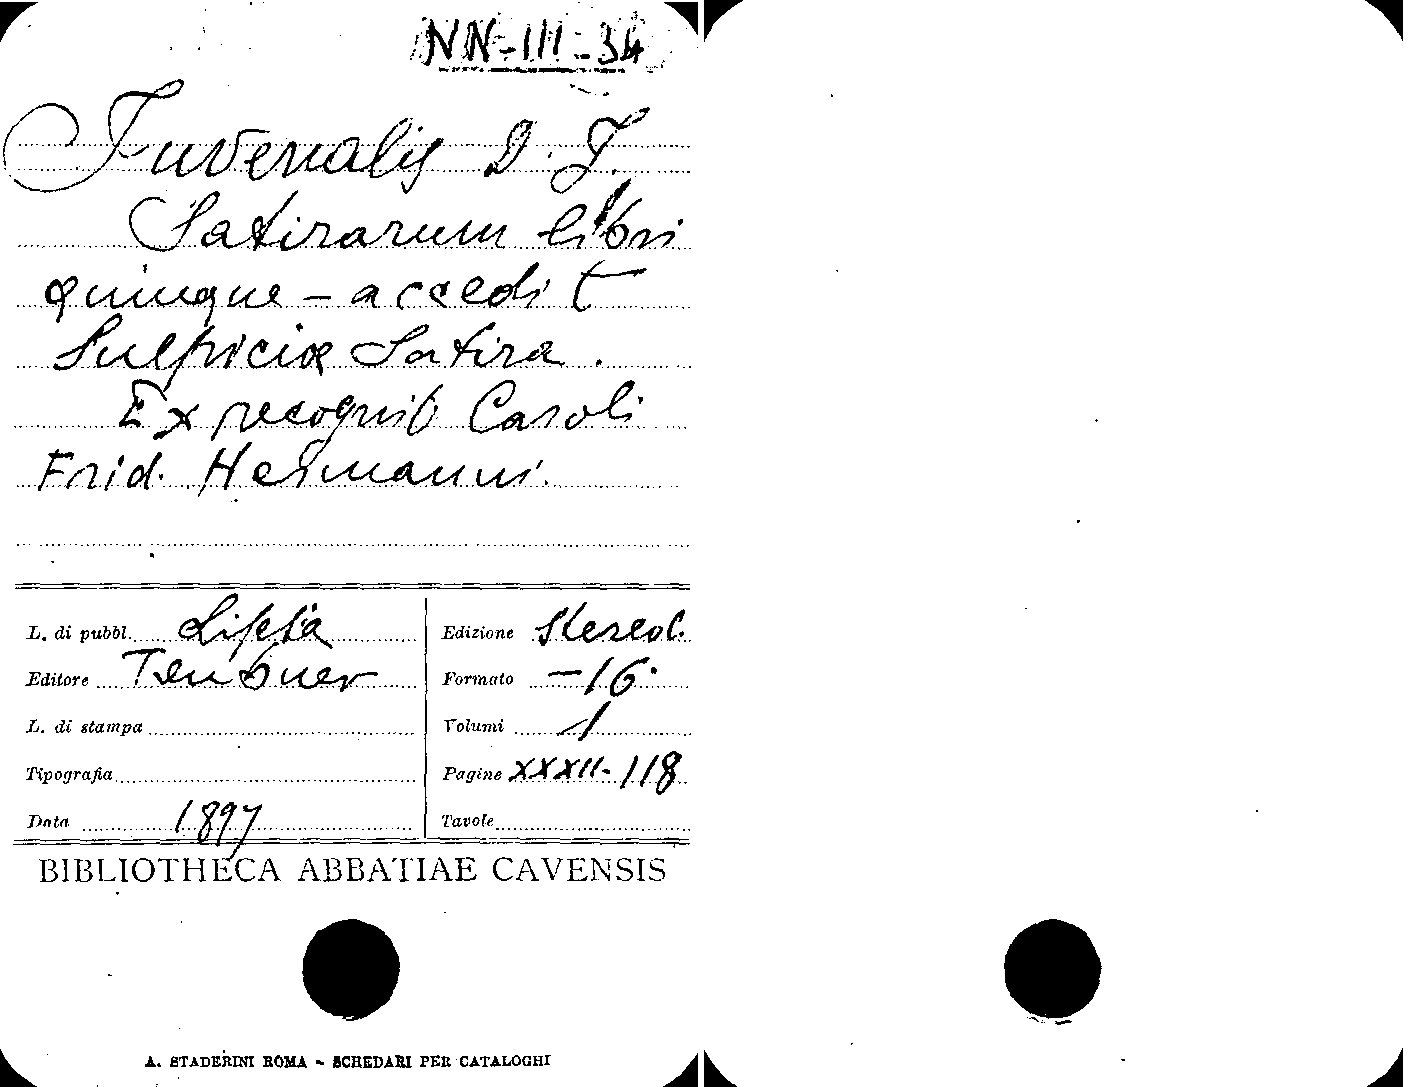 NN-III-34
Juvenalis D. J.
Satirarum libri
quinque - accedit
Sulpiciæ Satira.
Ex recognit Caroli
Frid. Hermanni.
L. di pubbl. Lipsia
Edizione Stereot.
Editore Teubner
Formato -16°
L. di stampa
Volumi 1
Tipografia
Pagine XXXII-118
Data 1897
Tavole
BIBLIOTHECA ABBATIAE CAVENSIS
A. STADERINI ROMA - SCHEDARI PER CATALOGHI